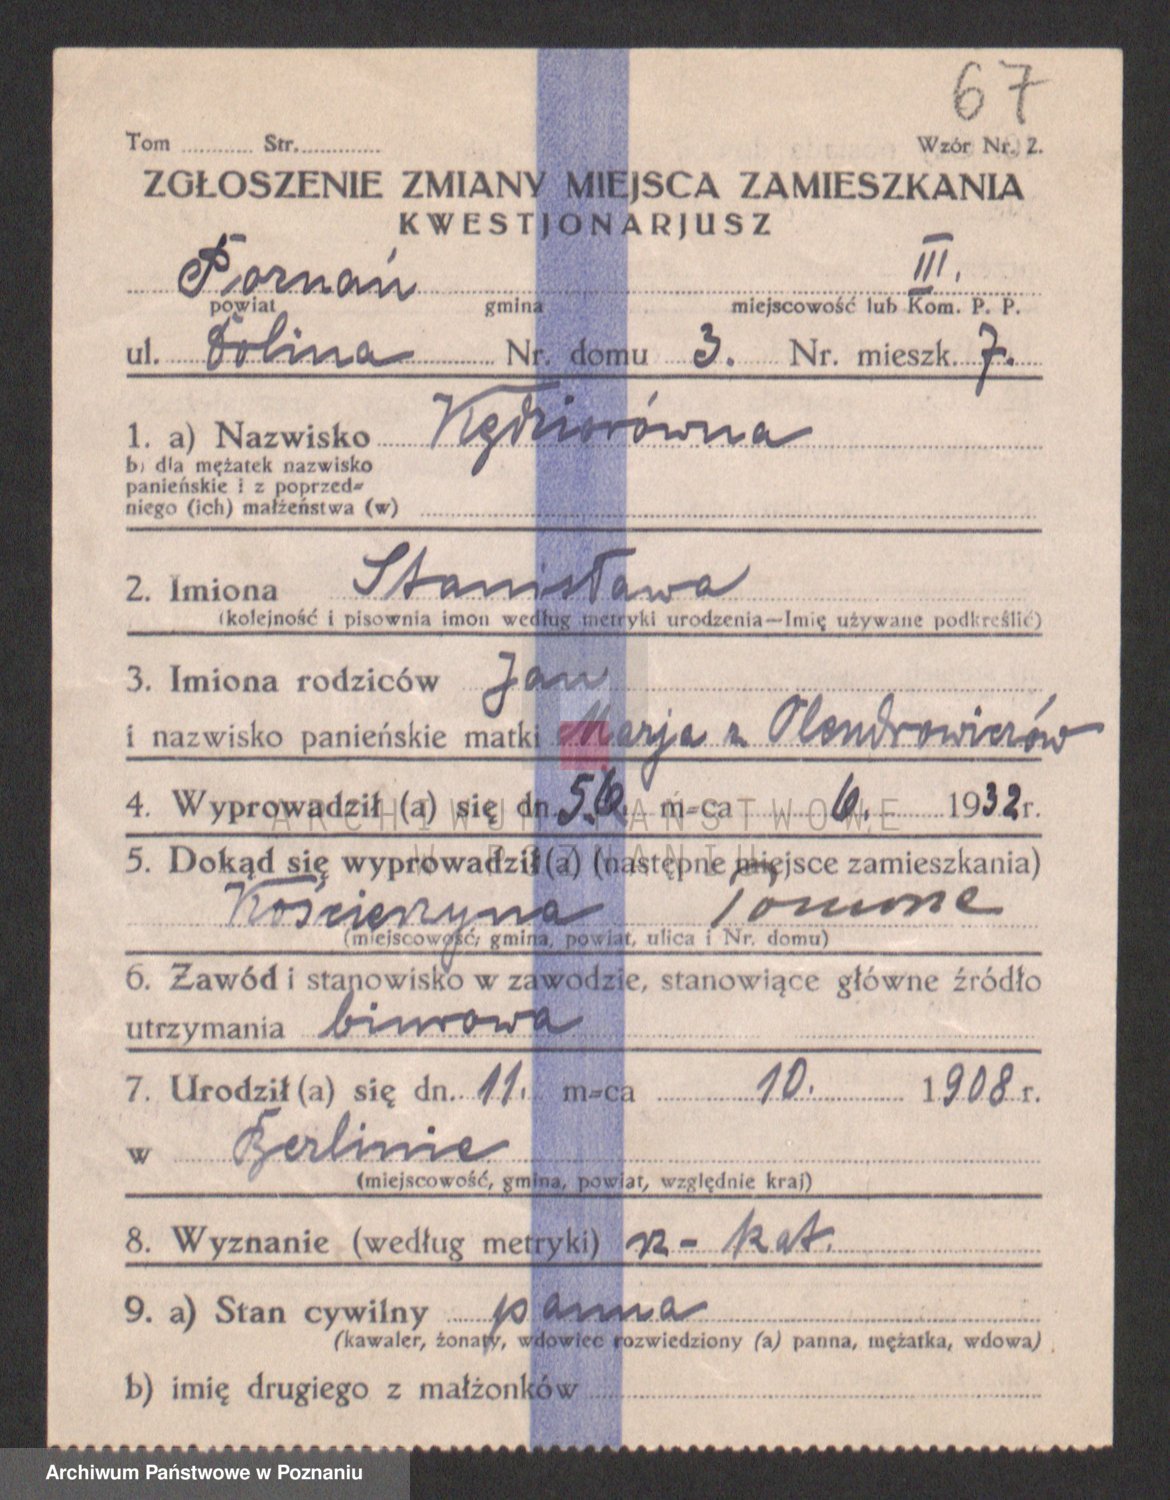 67
Tom ............ Str...............
Wzór Nr. 2.
ZGŁOSZENIE ZMIANY MIEJSCA ZAMIESZKANIA
KWESTJONARJUSZ
Poznań III.
powiat gmina miejscowość lub Kom. P. P.
ul. Dolina Nr. domu 3. Nr. mieszk. 7.
1. a) Nazwisko Kędziorówna
b) dla mężatek nazwisko
panieńskie i z poprzed-
niego (ich) małżeństwa (w)
2. Imiona Stanisława
(kolejność i pisownia imon według metryki urodzenia—Imię używane podkreślić)
3. Imiona rodziców Jan
i nazwisko panieńskie matki Marja z Olendrowiczów
4. Wyprowadził (a) się dn. m-ca 6. 1932 r.
ARCHIWUM PAŃSTWOWE
W POZNANIU
5. Dokąd się wyprowadził(a) (następne miejsce zamieszkania)
Kościerzyna
(miejscowość, gmina, powiat, ulica i Nr. domu)
6. Zawód i stanowisko w zawodzie, stanowiące główne źródło
utrzymania biurowa
7. Urodził (a) się dn. 11. m-ca 10. 1908 r.
w Berlinie
(miejscowość, gmina, powiat, względnie kraj)
8. Wyznanie (według metryki) rz- kat.
9. a) Stan cywilny panna
(kawaler, żonaty, wdowiec rozwiedziony (a) panna, mężatka, wdowa)
b) imię drugiego z małżonków
Archiwum Państwowe w Poznaniu